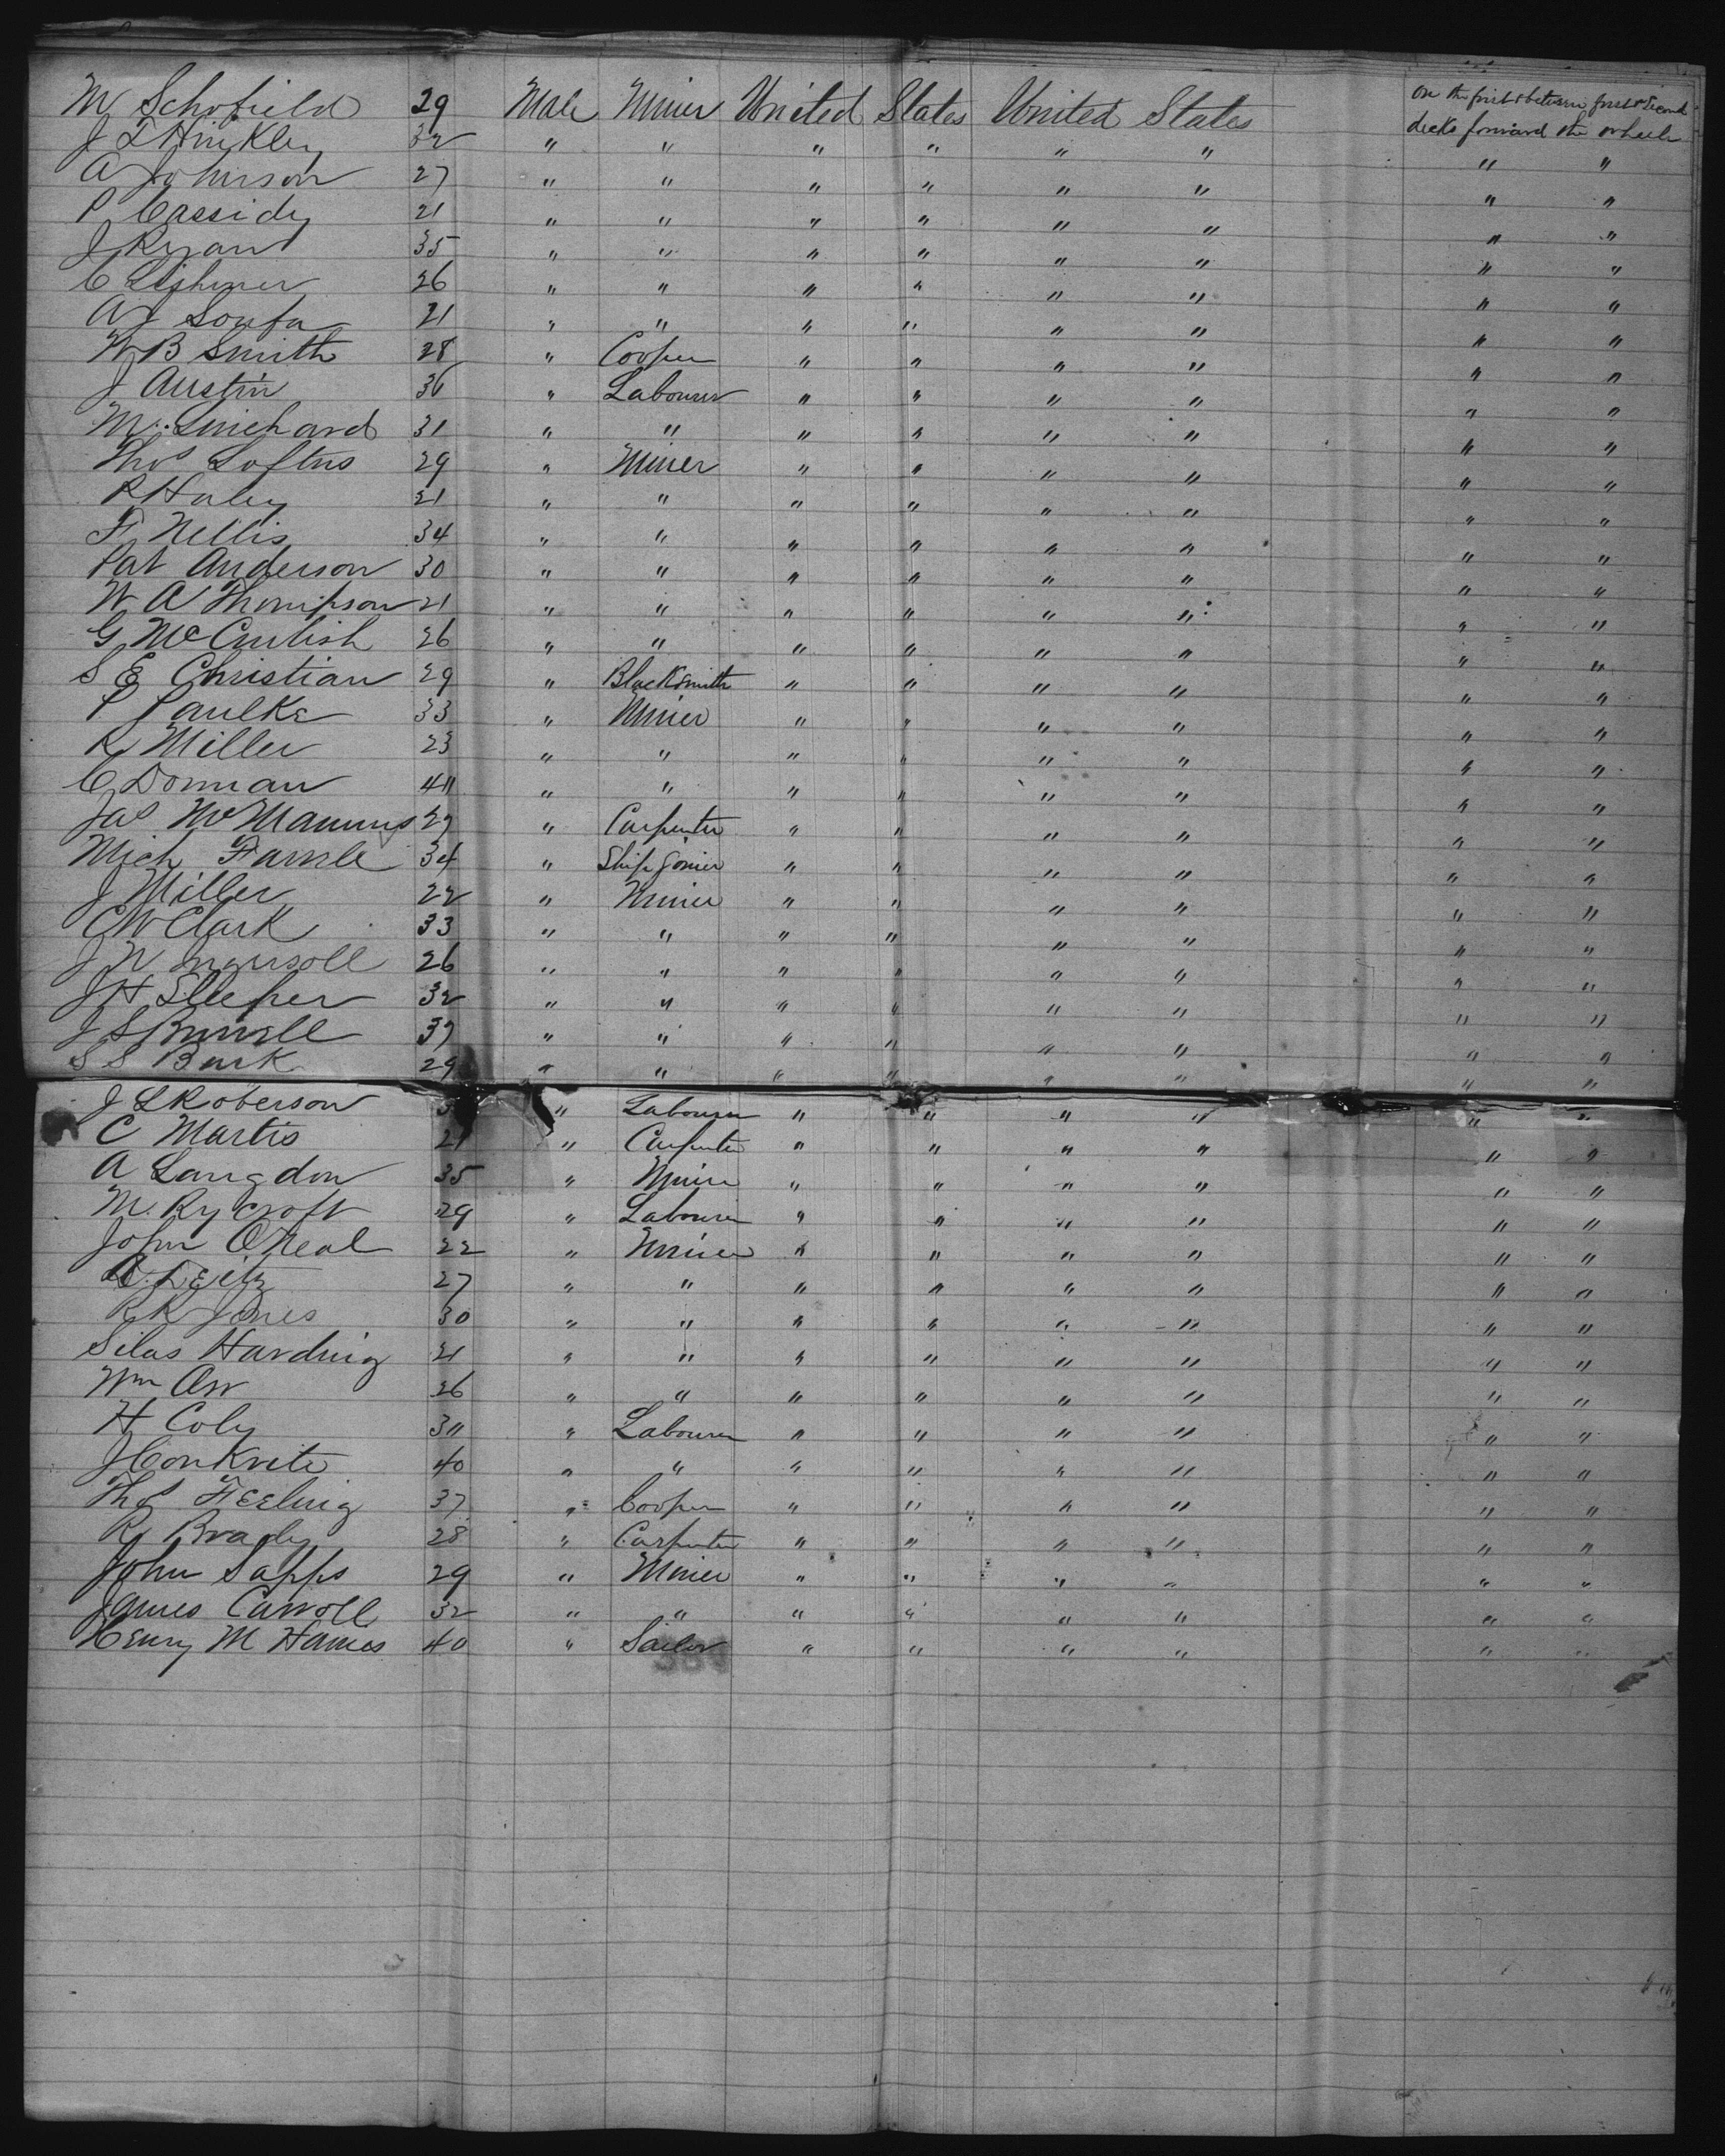 M Schofield 29 Male Miner United States United States On the first & between first & Second
decks forward the wheels
J T Hinkley 32 " " " " " " " "
A Johnson 27 " " " " " " " "
P Cassidy 21 " " " " " " " "
J Ryan 35 " " " " " " " "
C 26 " " " " " " " "
A J 21 " " " " " " " "
W B Smith 28 " Cooper " " " " " "
J Austin 36 " Labourer " " " " " "
M. 31 " " " " " " " "
Thos Loftus 29 " Miner " " " " " "
P Haley 21 " " " " " " " "
F Nellis 34 " " " " " " " "
Pat Anderson 30 " " " " " " " "
W A Thompson 21 " " " " " " " "
G 26 " " " " " " " "
S E Christian 29 " Blacksmith " " " " " "
P Paulke 33 " Miner " " " " " "
R Miller 23 " " " " " " " "
C Dornan 411 " " " " " " " "
Jas McManus 27 " Carpenter " " " " " "
Mich 34 " Ship Joiner " " " " " "
J Miller 22 " Miner " " " " " "
C W Clark 33 " " " " " " " "
J W Ingersoll 26 " " " " " " " "
J H Sleeper 32 " " " " " " " "
J S 37 " " " " " " " "
S S Burk 29 " " " " " " " "
J L Roberson " Labourer " " " " " "
C Martis 21 " Carpenter " " " " " "
A Langdon 35 " Miner " " " " " "
M. Rycroft 29 " Labourer " " " " " "
John O'Neal 22 " Miner " " " " " "
Deitz 27 " " " " " " " "
R K Jones 30 " " " " " " " "
Silas Harding 21 " " " " " " " "
Wm Orr 26 " " " " " " " "
H Coly 311 " Labourer " " " " " "
J Conkrite 40 " " " " " " " "
Thos Feeling 37 " Cooper " " " " " "
R Brady 28 " Carpenter " " " " " "
John Sapps 29 " Miner " " " " " "
James Carroll 32 " " " " " " " "
Henry M Hames 40 " Sailor " " " " " "